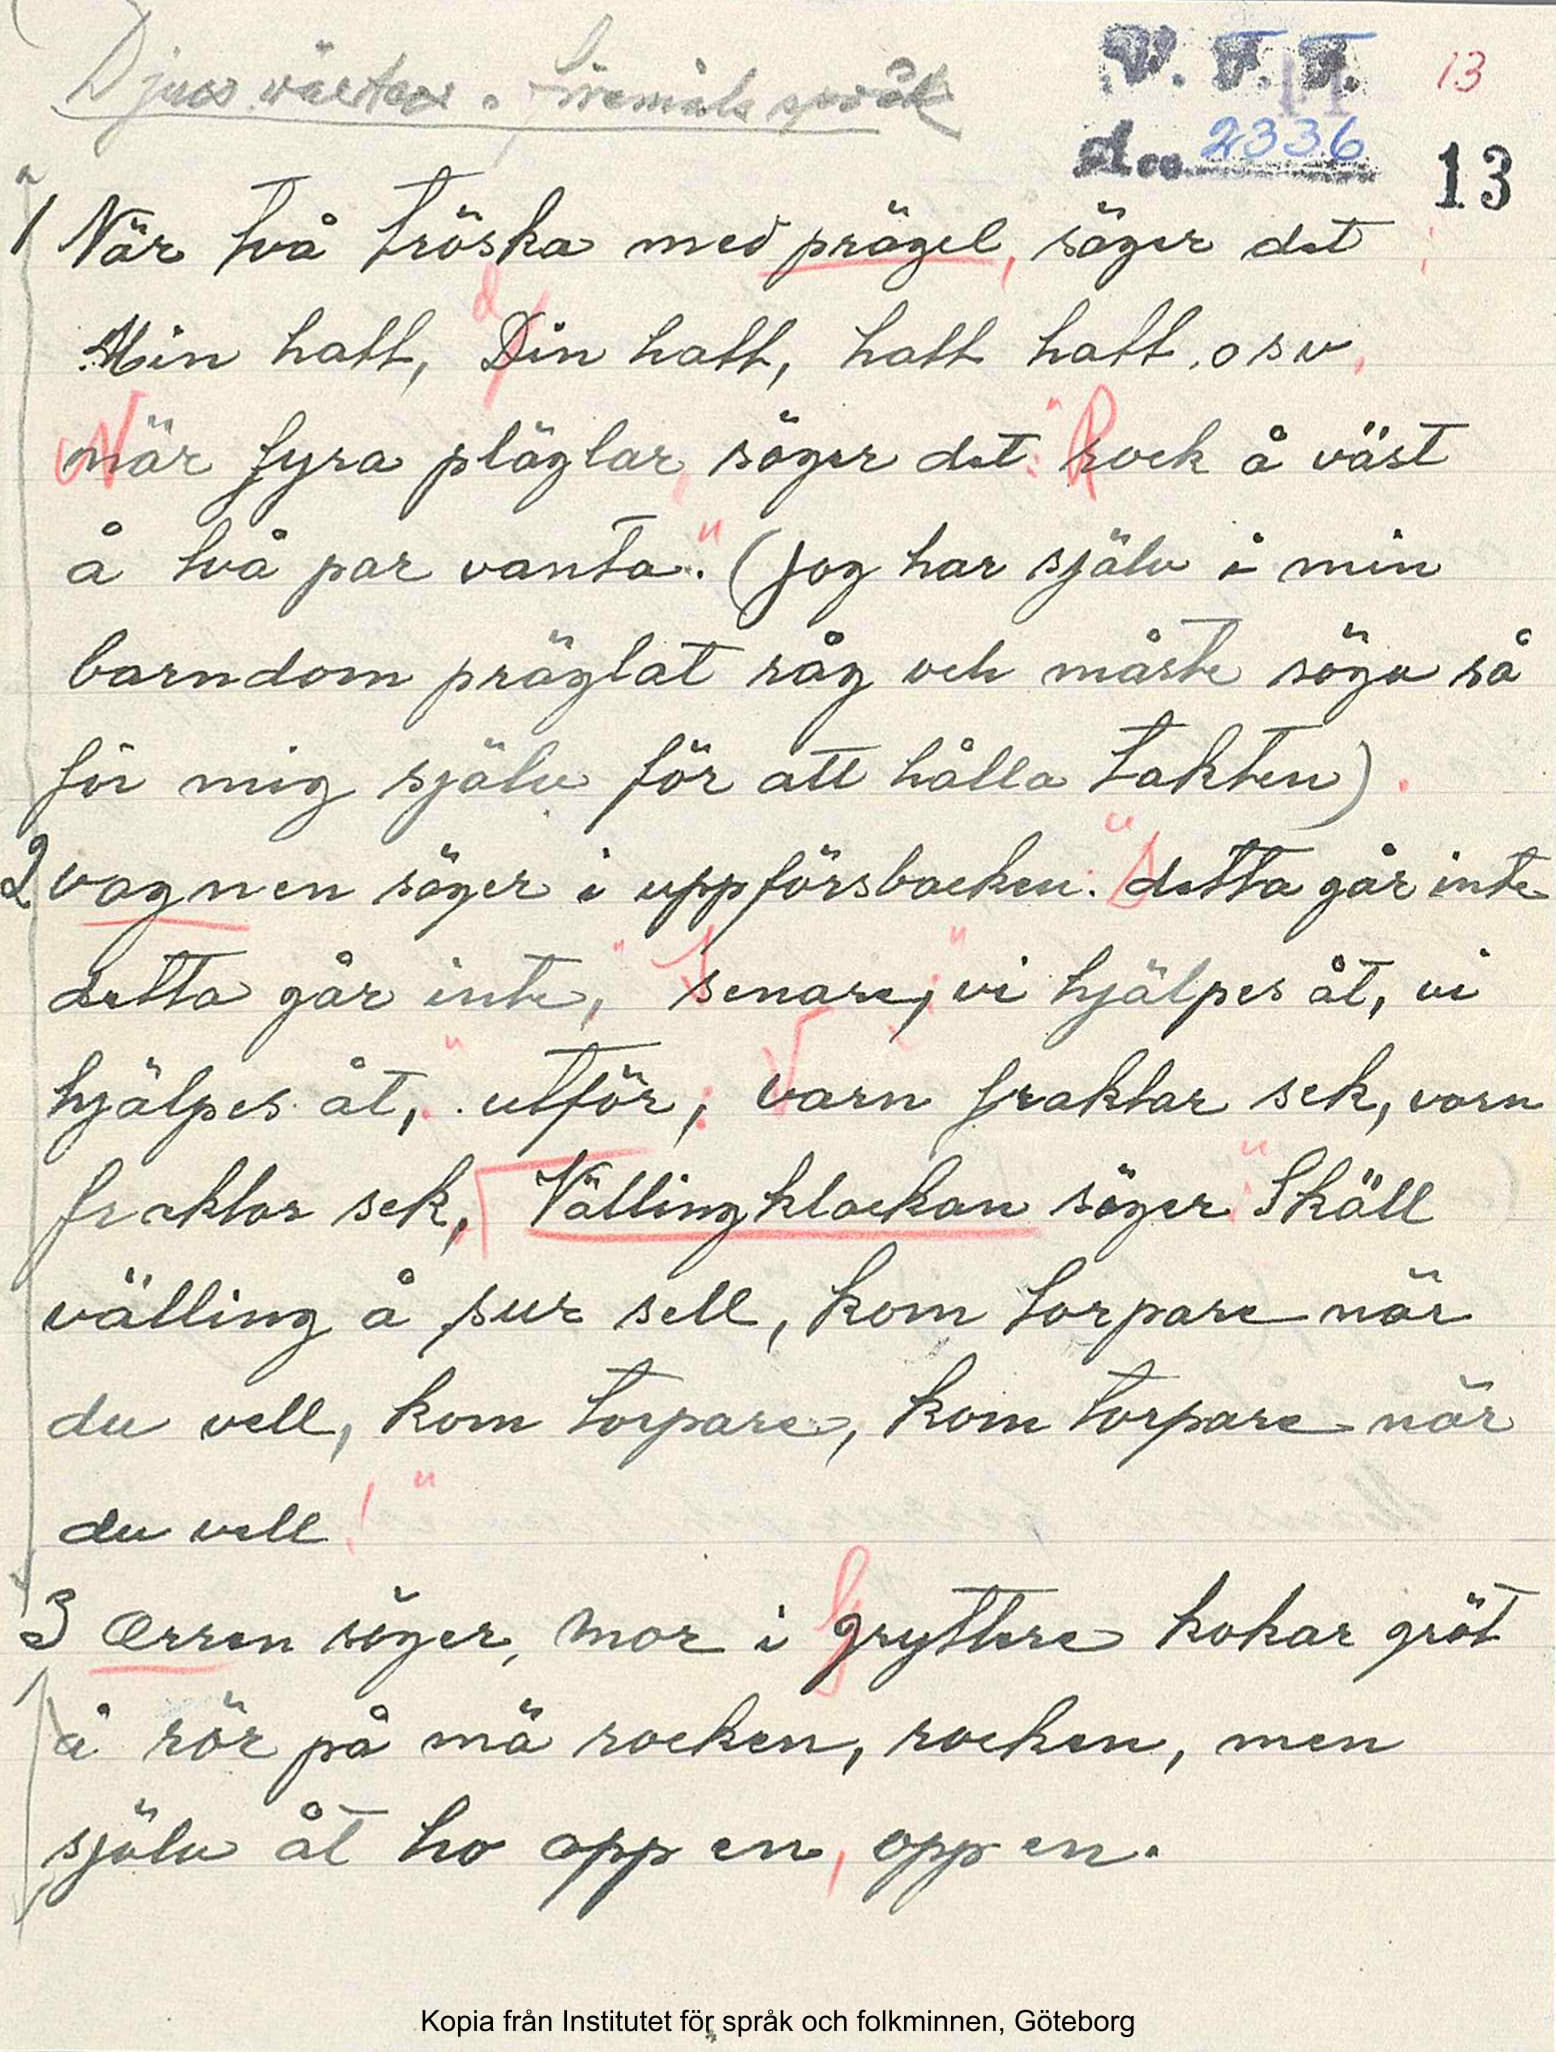 Djurs växters o. föremåls språk
V. F. F.
13
Acc. 2336
13
1 När två tröska med prägel, säger det:
Min hatt, din hatt, hatt hatt, osv.
När fyra pläglar, säger det: "Rock å väst
å två par vanta." (jag har själv i min
barndom präglat råg och måste säga så
för mig själv för att hålla takten).
2 Vagnen säger i uppförsbacken: "Detta går inte
detta går inte," Senare; "vi hjälpes åt, vi
hjälpes åt," utför; varn fraktar sek, varn
fraktar sek, Vällingklockan säger: "Skäll
välling å sur sell, kom torpare när
du vell, kom torpare, kom torpare när
du vell!"
3 Orren säger, mor i Gryttere kokar gröt
å rör på mä rocken, rocken, men
själv åt ho opp en, opp en.
Kopia från Institutet för språk och folkminnen, Göteborg